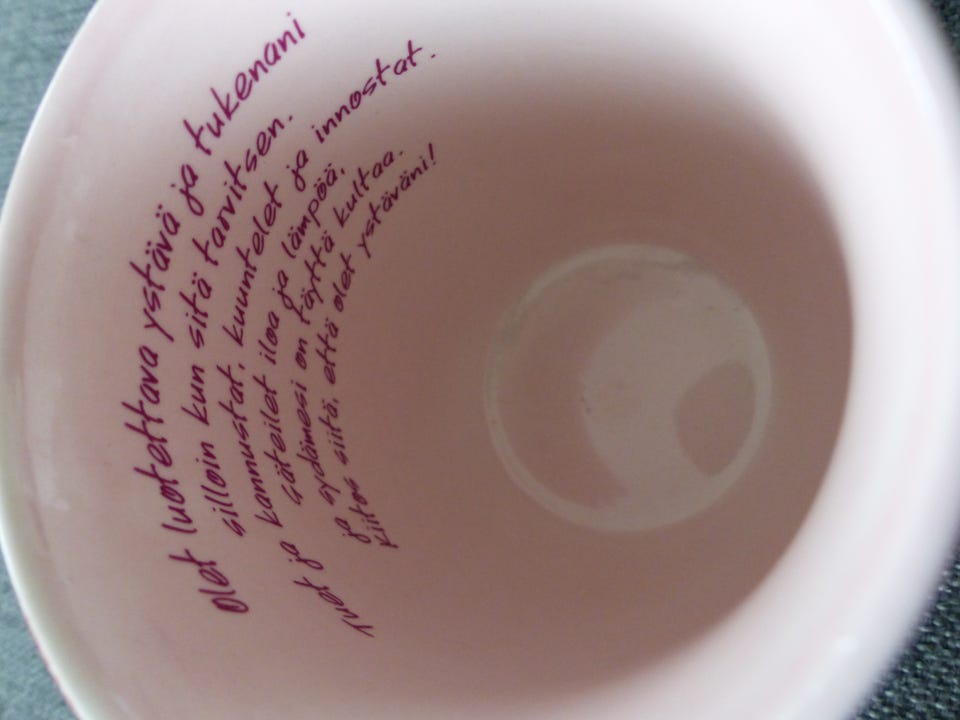 Olet luotettava ystävä ja tukenani
silloin kun sitä tarvitsen.
Tuet ja kannustat, kuuntelet ja innostat.
Säteilet iloa ja lämpöä,
ja sydämesi on täyttä kultaa.
Kiitos siitä, että olet ystäväni!